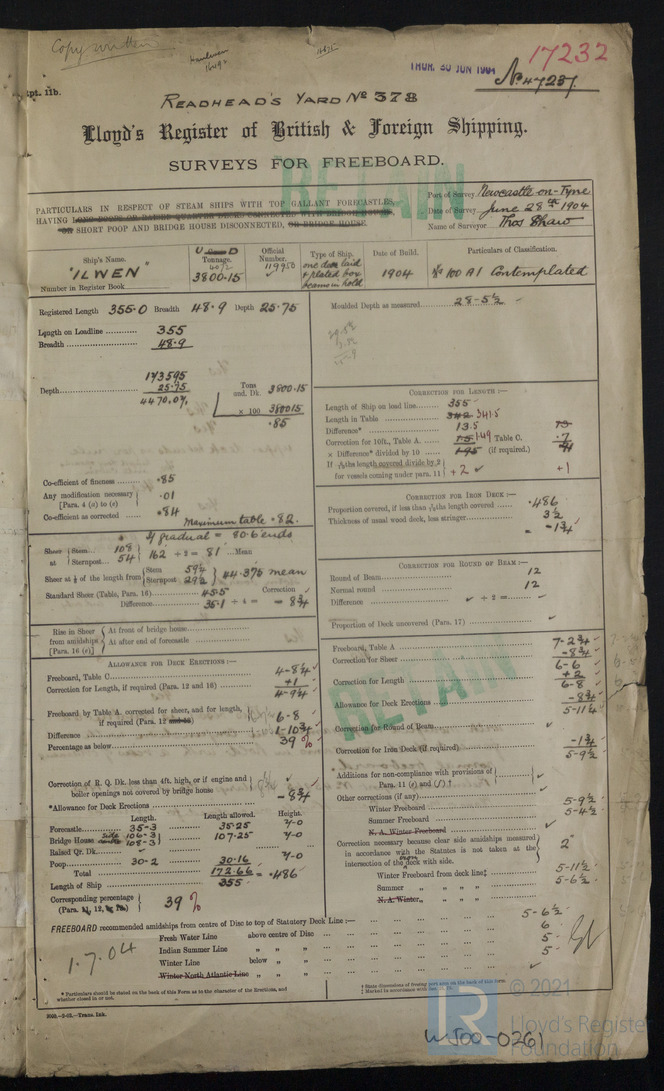 Copy written
THUR. 30 JUN 1904
17232
No 47237
Rpt. 11b.
READHEAD'S YARD No 378
Lloyd's Register of British & Foreign Shipping.
SURVEYS FOR FREEBOARD.
RETAIN
PARTICULARS IN RESPECT OF STEAM SHIPS WITH TOP GALLANT FORECASTLES,
HAVING LONG POOPS OR RAISED QUARTER DECKS CONNECTED WITH BRIDGE HOUSES,
OR SHORT POOP AND BRIDGE HOUSE DISCONNECTED, OR BRIDGE HOUSE
Port of Survey Newcastle-on-Tyne
Date of Survey June 28th 1904
Name of Surveyor Thos Shaw
Ship's Name. "ILWEN"
Number in Register Book
Tonnage. 3800.15
Official Number. 119950
Type of Ship. one deck laid & plated box beams in hold
Date of Build. 1904
Particulars of Classification. 100 A1 Contemplated
Registered Length 355.0 Breadth 48.9 Depth 25.75
Moulded Depth as measured 28-5½
Length on Loadline 355
Breadth 48.9
173595
Depth 25.75
4470.07
Tons und. Dk. 3800.15
× 100 380015
.85
Co-efficient of fineness .85
Any modification necessary [Para. 4 (a) to (e)] .01
Co-efficient as corrected .84
Maximum table .82.
CORRECTION FOR LENGTH :—
Length of Ship on load line 355
Length in Table 342 341.5
Difference* 13.5
Correction for 10ft., Table A. 1.5 1.49 Table C. .7
× Difference* divided by 10 1.95 (if required.)
If 6/10ths length covered divide by 2
for vessels coming under para. 11 +2 +1
CORRECTION FOR IRON DECK :—
Proportion covered, if less than 7/10ths length covered .486
Thickness of usual wood deck, less stringer 3½
= -1¾
gradual = 80.6 ends
Sheer at Stem 108
Sternpost 54 162 ÷ 2 = 81 Mean
Sheer at ⅛ of the length from Stem 59½
Sternpost 29½ 44.375 mean
Standard Sheer (Table, Para. 16) 45.5 Correction
Difference 35.1 ÷ 4 = - 8¾
CORRECTION FOR ROUND OF BEAM :—
Round of Beam 12
Normal round 12
Difference ÷ 2 =
Proportion of Deck uncovered (Para. 17)
Rise in Sheer from amidships [Para. 16 (e)]
At front of bridge house
At after end of forecastle
ALLOWANCE FOR DECK ERECTIONS :—
Freeboard, Table C 4-8¼
Correction for Length, if required (Para. 12 and 13) +1
4-9¼
Freeboard by Table A. corrected for sheer, and for length,
if required (Para. 12 and 13) 6-8
Difference 1-10¾
Percentage as below 39 %
Correction of R. Q. Dk. less than 4ft. high, or if engine and
boiler openings not covered by bridge house
*Allowance for Deck Erections -8¾
Length. Length allowed. Height.
Forecastle 35-3 35.25 7-0
Bridge House 106-3 108-3 107.25 7-0
Raised Qr. Dk.
Poop 30-2 30.16 7-0
Total 172.66 = .486
Length of Ship 355
Corresponding percentage 39 %
Freeboard, Table A 7-2¾
Correction for Sheer -8¾
6-6
Correction for Length +2
6-8
Allowance for Deck Erections -8¾
5-11¼
Correction for Round of Beam
Correction for Iron Deck (if required) -1¾
5-9½
Additions for non-compliance with provisions of
Para. 11 (e) and (f)
Other corrections (if any)
Winter Freeboard 5-9½
Summer Freeboard 5-4½
N. A. Winter Freeboard
Correction necessary because clear side amidships measured
in accordance with the Statutes is not taken at the
intersection of the deck with side. 2"
Winter Freeboard from deck line‡ 5-11½
Summer „ „ „ „ 5-6½
N. A. Winter „ „ „ „
FREEBOARD recommended amidships from centre of Disc to top of Statutory Deck Line :— 5-6½
Fresh Water Line above centre of Disc 6
Indian Summer Line „ „ „ 5
Winter Line below „ „ 5
Winter North Atlantic Line „ „ „
1.7.04
* Particulars should be stated on the back of this Form as to the character of the Erections, and
whether closed in or not.
† State dimensions of freeing port area on the back of this form.
W500-0261
© 2021
Lloyd's Register
Foundation